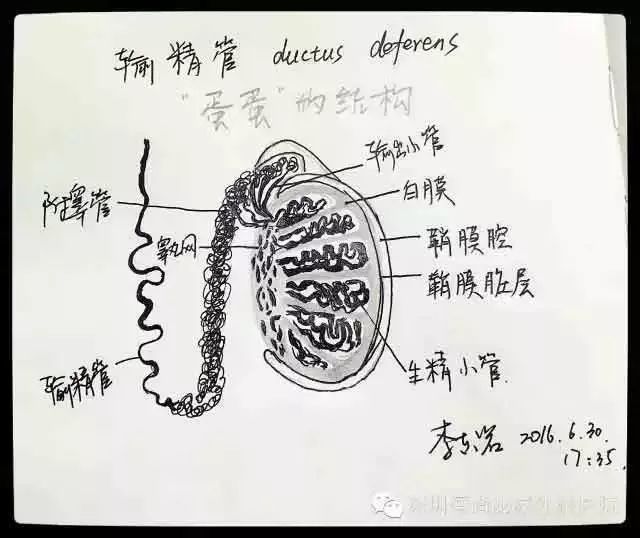 输精管 ductus deferens
"蛋蛋"的结构
输出小管
附睾管
白膜
睾丸网
鞘膜腔
鞘膜脏层
生精小管
输精管
2016.6.30.
17:35